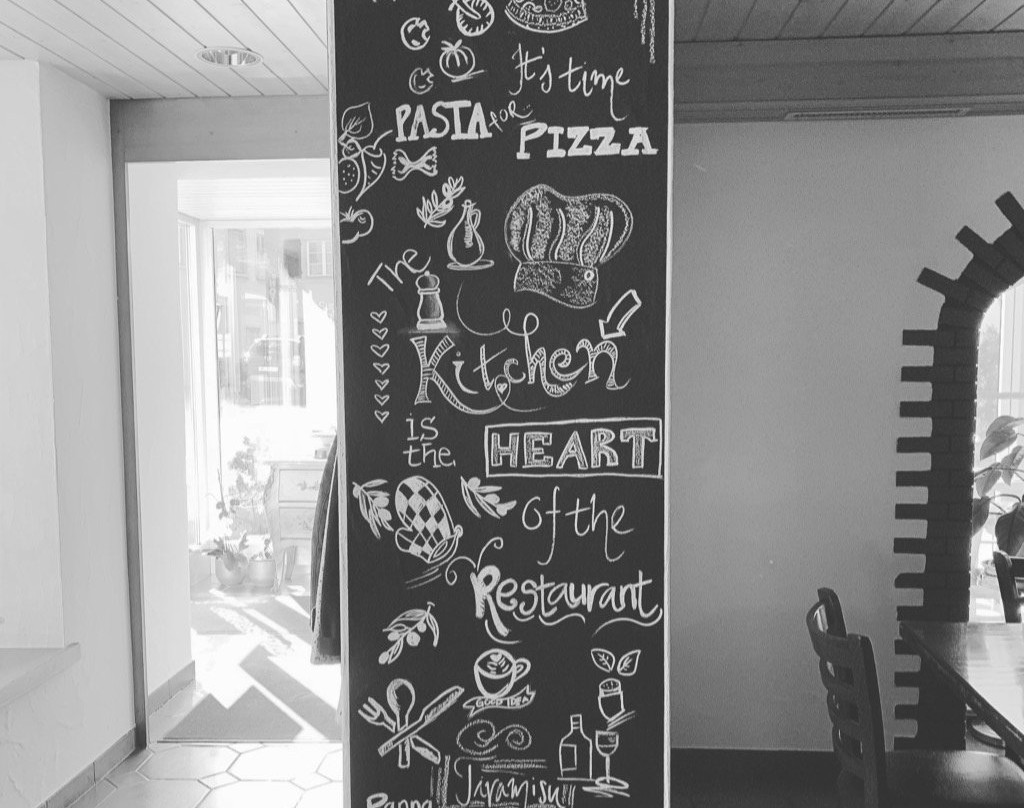 It's time
PASTA for
PIZZA
The
Kitchen
is
the
HEART
of the
Restaurant
GOOD IDEA
Tiramisu
Panna